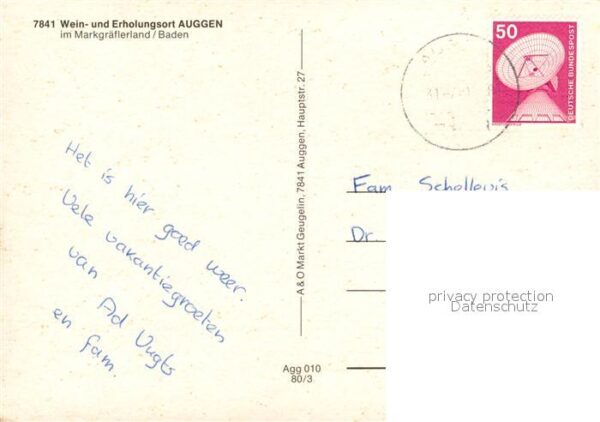 7841 Wein- und Erholungsort AUGGEN
im Markgräflerland / Baden
Het is hier goed weer.
Vele vakantiegroeten
van
Ad Vugts
en fam.
A & O Markt Geugelin, 7841 Auggen, Hauptstr. 27
Agg 010
80/3
50
DEUTSCHE BUNDESPOST
Fam Schellevis
Dr.
privacy protection
Datenschutz